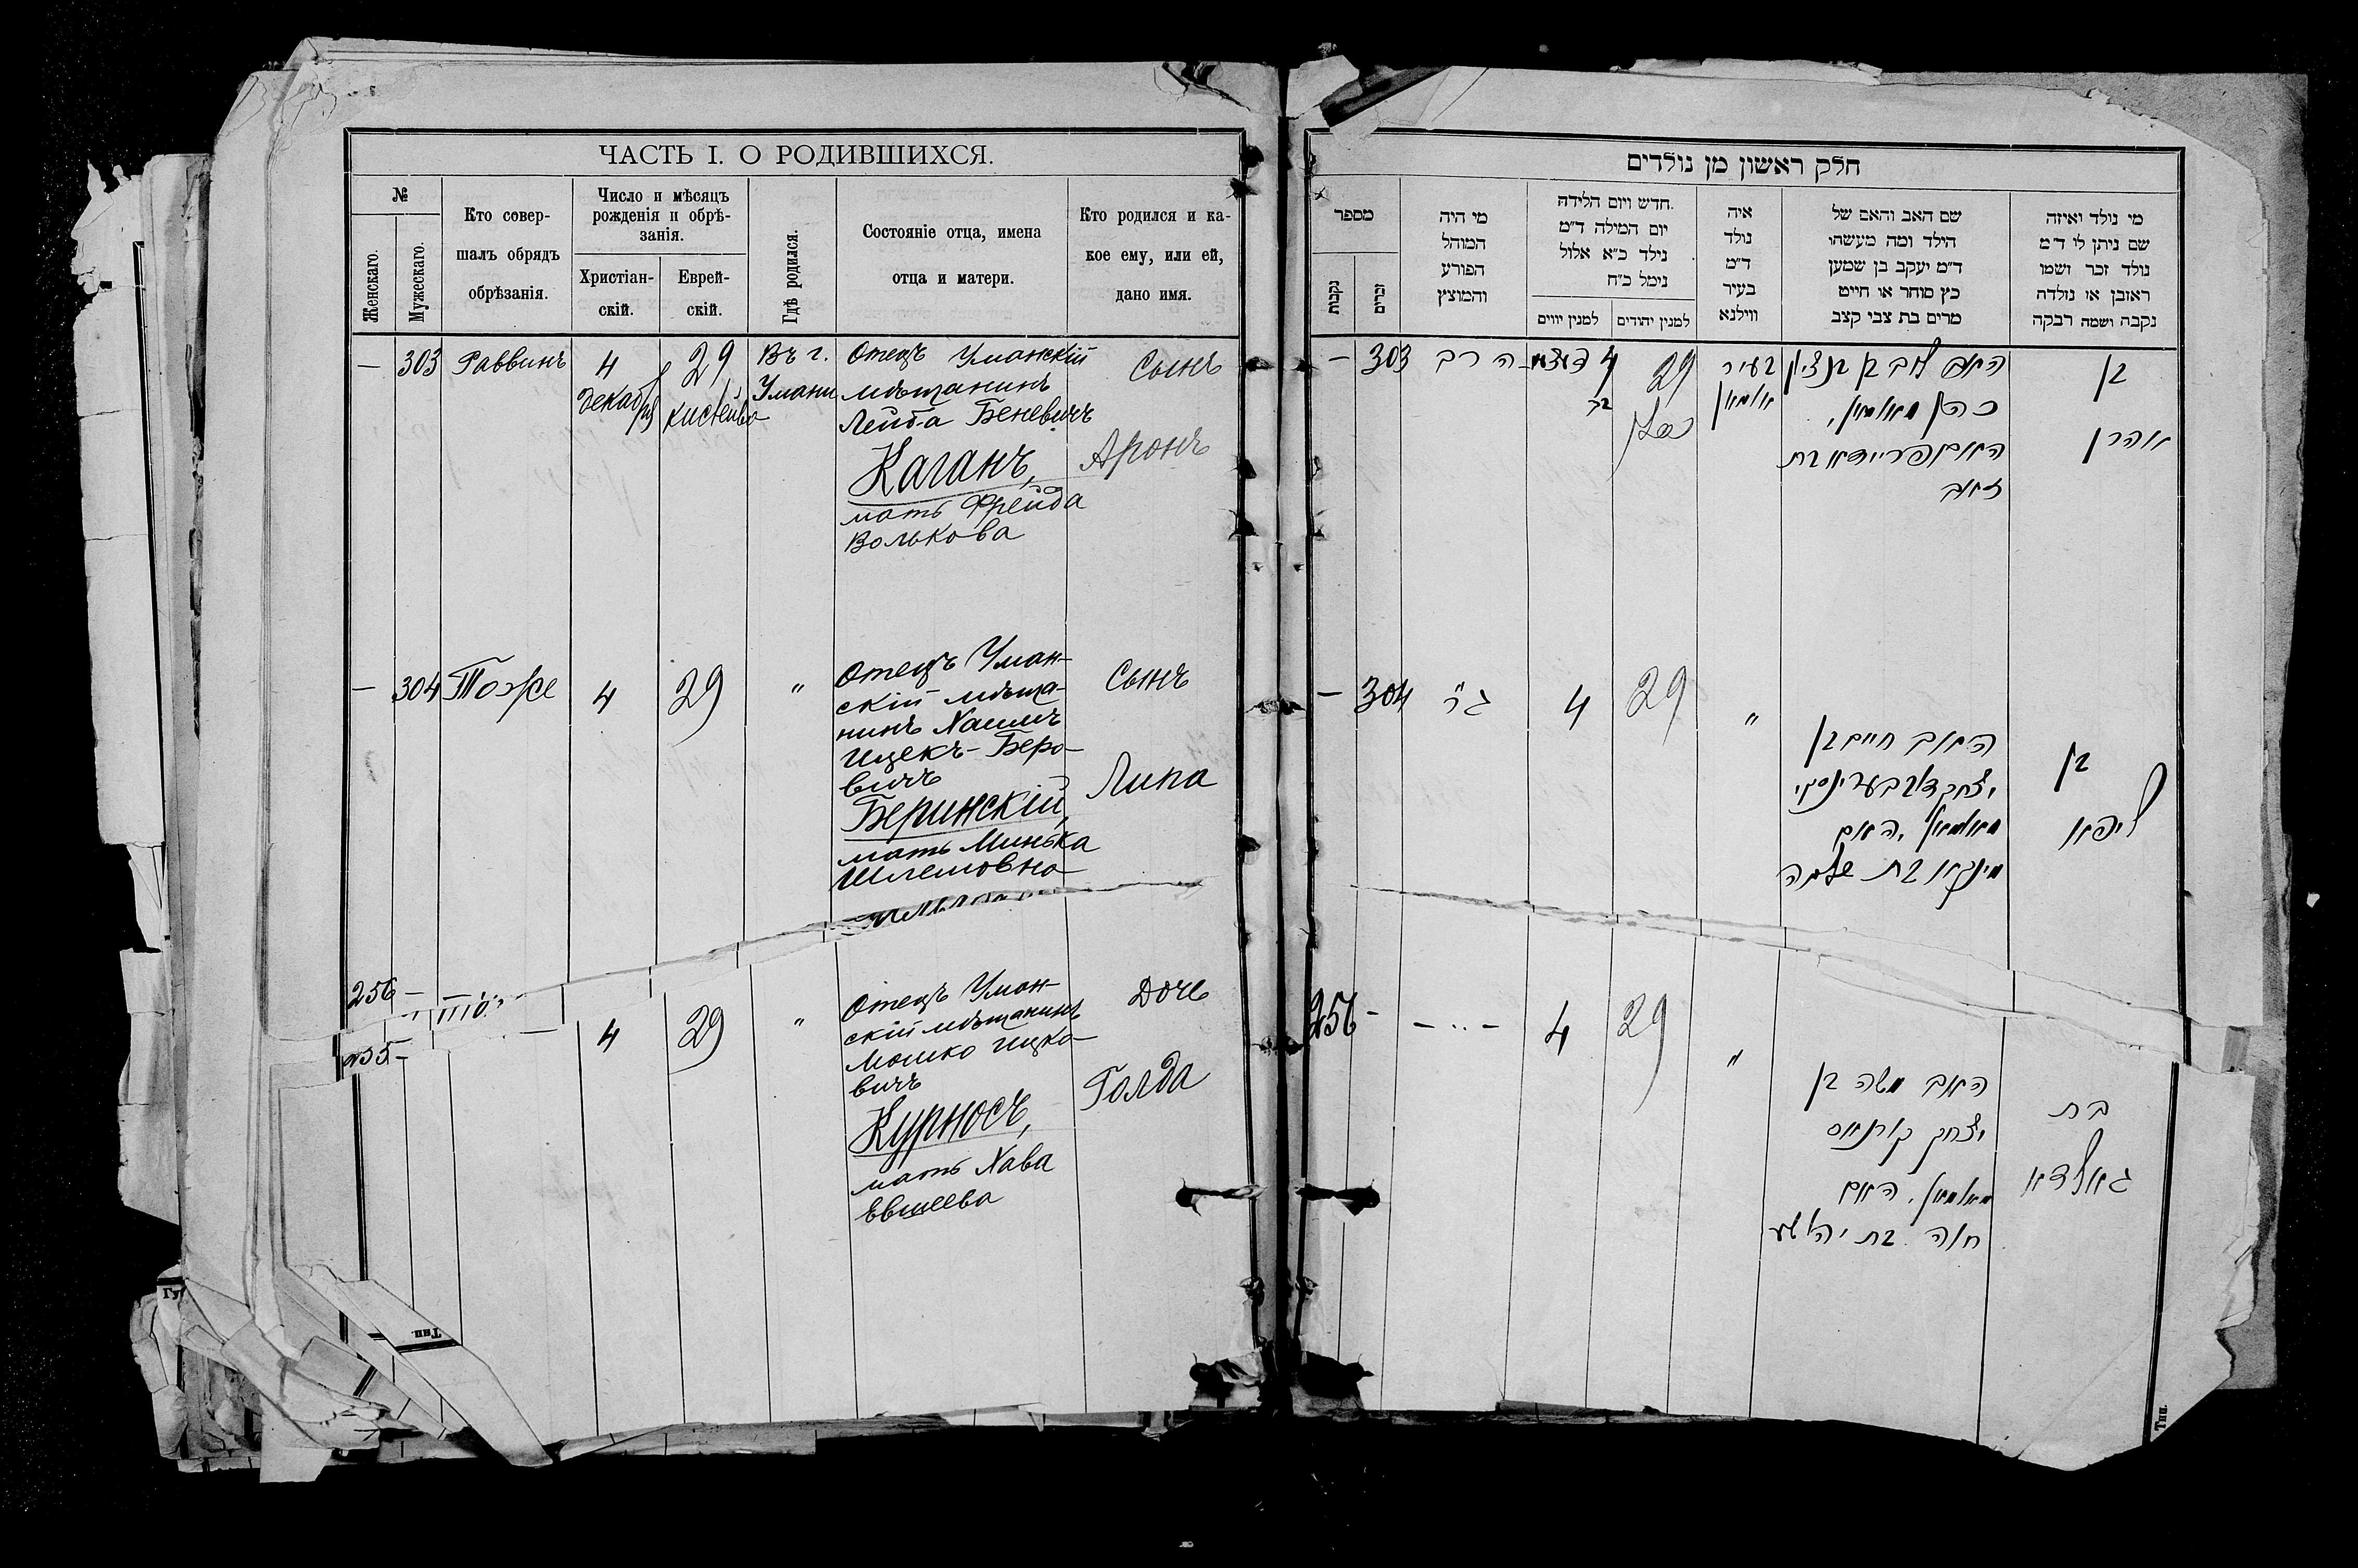 ЧАСТЬ I. О РОДИВШИХСЯ.
№
Женскаго.
Мужескаго.
Кто совер-
шалъ обрядъ
обрѣзанія.
Число и мѣсяцъ
рожденія и обрѣ-
занія.
Христіан-
скій.
Еврей-
скій.
Гдѣ родился.
Состояніе отца, имена
отца и матери.
Кто родился и ка-
кое ему, или ей,
дано имя.
— 303 Раввинъ
4
декабря
29
кислева
Въ г.
Умани
Отецъ Уманскій
мѣщанинъ
Лейба Беневичъ
Каганъ,
мать Фрейда
Волькова
Сынъ
Аронъ
— 304 Тоже 4 29 "
Отецъ Уман-
скій мѣща-
нинъ Хаимъ
Ицекъ-Беро-
вичъ
Беринскій,
мать Минька
Шлемовна
Сынъ
Липа
256 —
— 4 29 "
Отецъ Уман-
скій мѣщанинъ
Мошко Ицко-
вичъ
Курносъ,
мать Хава
Евшеева
Дочь
Голда
255 —
Тип.
חלק ראשון מן נולדים
מספר
נקבות
זכרים
מי היה
המוהל
הפורע
והמוצץ
חדש ויום הלידה
יום המילה ד"מ
נילד כ"א אלול
נימל כ"ח
למנין יוונים
למנין יהודים
איה
נולד
ד"מ
בעיר
ווילנא
שם האב והאם של
הילד ומה מעשהו
ד"מ יעקב בן שמעון
כץ סוחר או חייט
מרים בת צבי קצב
מי נולד ואיזה
שם ניתן לו ד"מ
נולד זכר ושמו
ראובן או נולדה
נקבה ושמה רבקה
— 303 הרב
4
29
כסלו
בעיר
אומאן
האם פריידא בת
זאב
בן
אהרן
— 304 4 29 "
האב חיים בן
יצחק דוב בערינסקי
מאומאן, האם
מינקא בת שלמה
בן
ליפא
256 - - " - 4 29 "
האב משה בן
יצחק קורנאס
מאומאן, האם
חוה בת יהושע
בת
גאלדא
Тип.